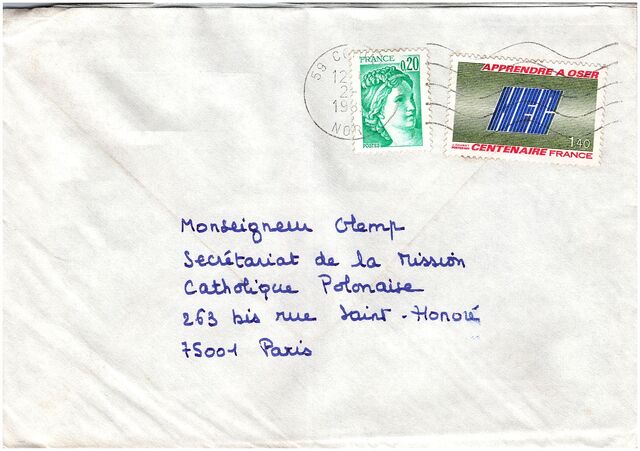 59 CO
FRANCE
0,20
12
2
198
NOR
POSTES
APPRENDRE A OSER
HEC
1,40
CENTENAIRE FRANCE
Monseigneur Glemp
Secrétariat de la Mission
Catholique Polonaise
263 bis rue Saint-Honoré
75001 Paris